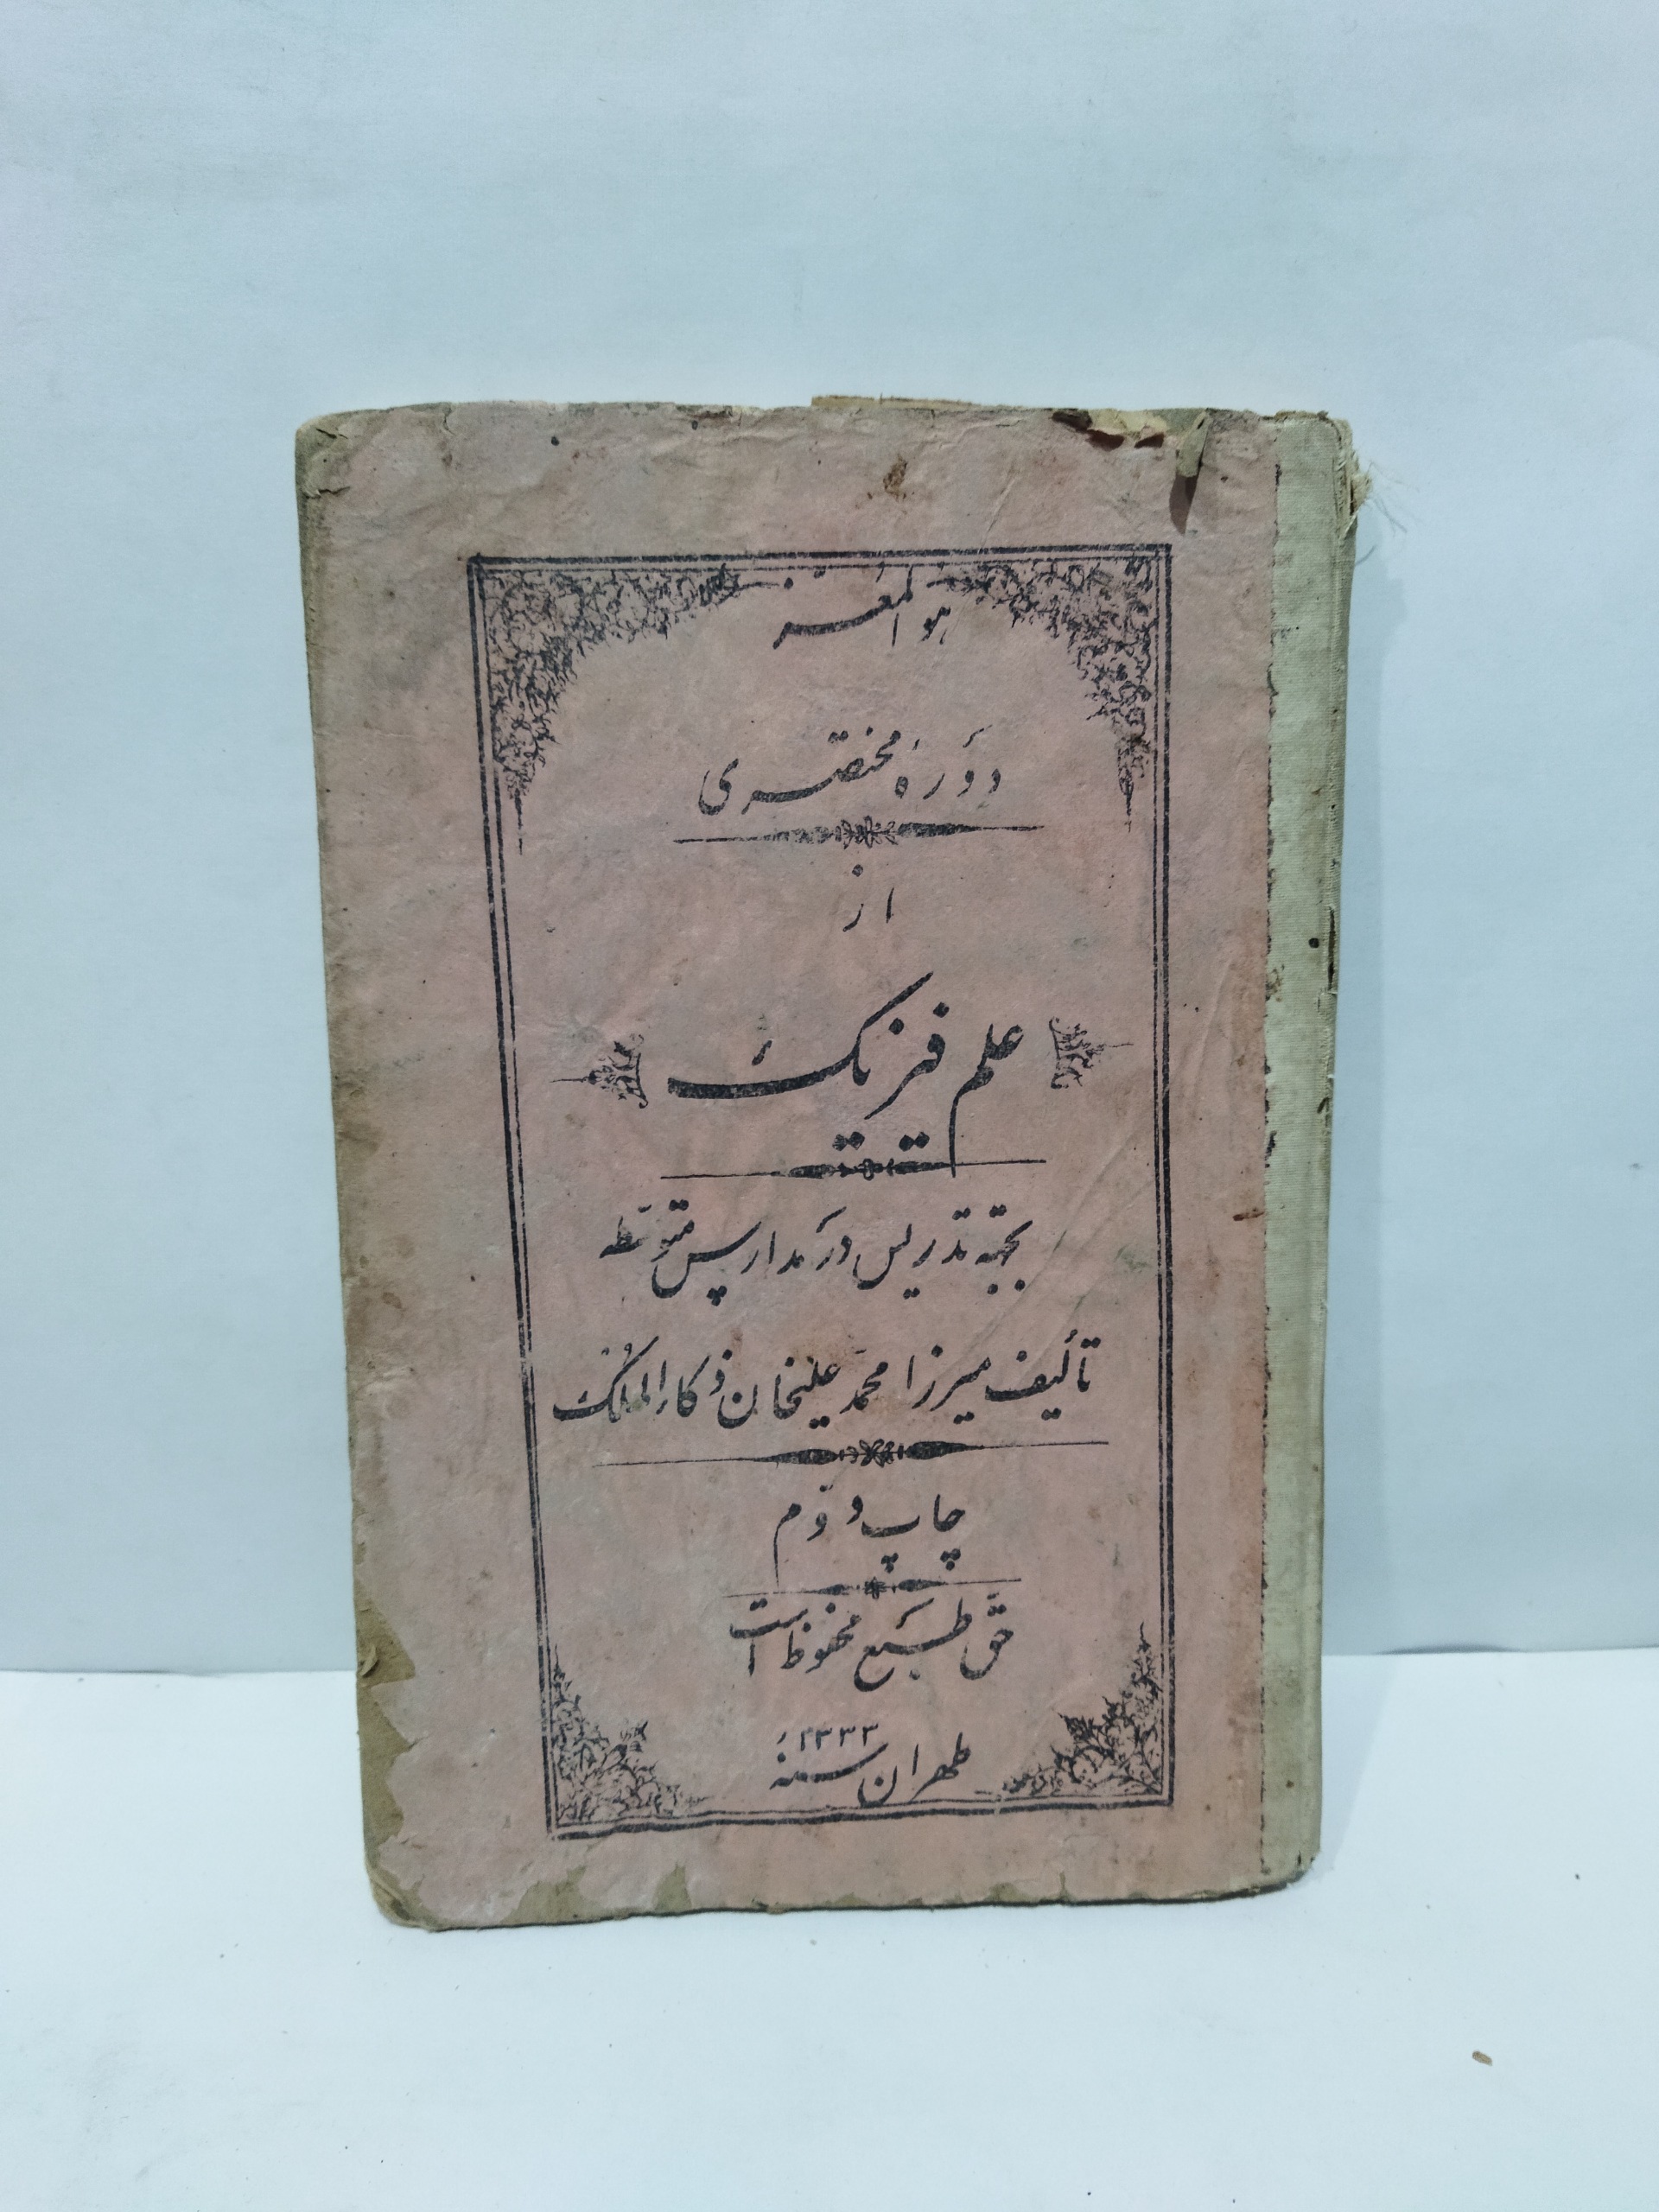 هوالمعز
دورهٔ مختصری
از
علم فیزیک
بجهة تدریس در مدارس متوسطه
تألیف میرزا محمد علیخان ذکاء الملک
چاپ دوّم
حقّ طبع محفوظ است
طهران سنهٔ ۱۳۳۳